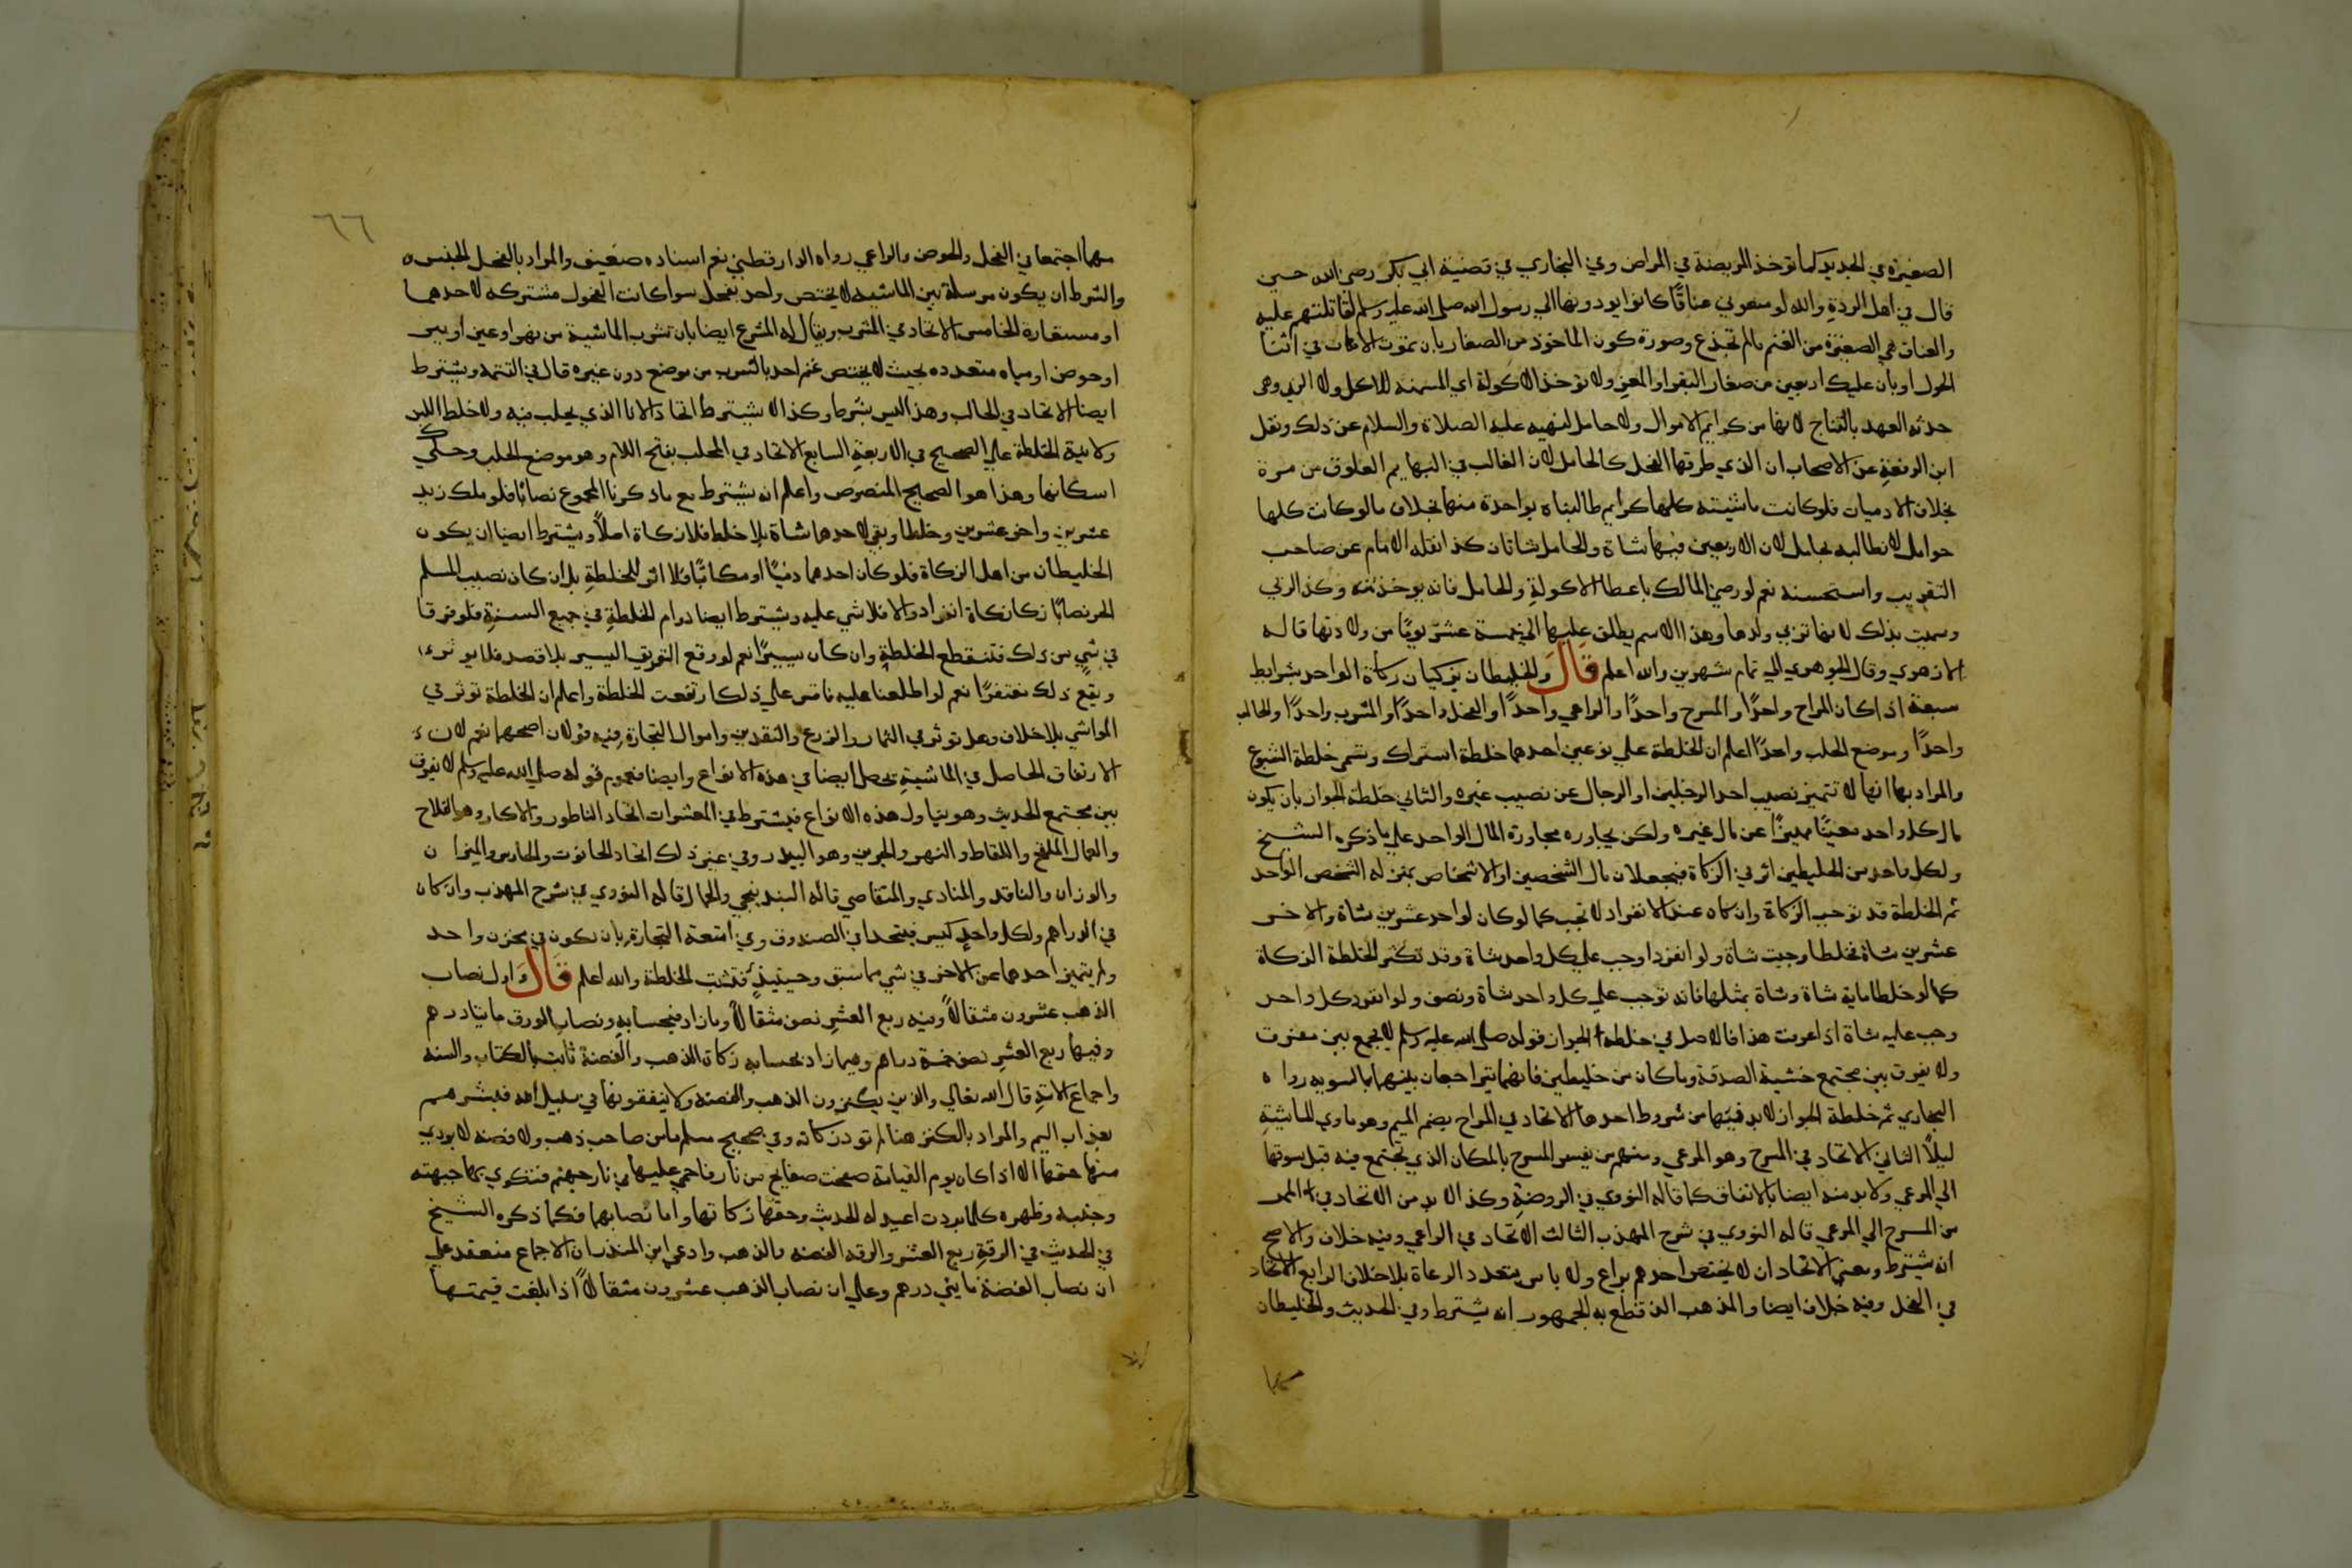 الصغيرة في الجديد كما توخذ المريضة في المراض وفي البخاري في قضية ابي بكر رضي الله حين
قال في اهل الردة والله لو منعوني عناقا كانوا يودونها الي رسول الله صلى الله عليه وسلم لقاتلتهم عليه
والعناق هي الصغيرة من الغنم ما لم تجذع وصورة كون الماخوذ من الصغار بان تموت الامهات في اثنا
الحول او بان عليك اربعين من صغار البقر او المعز ولا توخذ الاكولة اي المسمنه للاكل ولا الربي وهي
حدثه العهد بالنتاج لانها من كرايم الاموال ولا حامل لنهيه عليه الصلاة والسلام عن ذلك ونقل
ابن الرفعة عن الاصحاب ان الذي طرقها الفحل كالحامل لان الغالب في البهايم العلوق من مرة
بخلاف الادميات فلو كانت ماشيته كلها كرايم طالبناه بواحدة منها بخلاف ما لو كانت كلها
حوامل لا نطالبه بحامل لان الاربعين فيها شاة والحامل شاتان كذا نقله الامام عن صاحب
التقريب واستحسنه نعم لو رضي المالك باعطا الاكولة والحامل فانه يوخذ منه وكذا الربي
وسميت بذلك لانها تربي ولدها وهذا الاسم يطلق عليها الي خمسة عشر يوما من ولادتها قاله
الازهري وقال الجوهري الي تمام شهرين والله اعلم قال والخليطان يزكيان زكاة الواحد بشرايط
سبعة اذا كان المراح واحدا والمسرح واحدا والراعي واحدا والفحل واحدا والمشرب واحدا والحالب
واحدا وموضع الحلب واحدا اعلم ان الخلطة علي نوعين احدهما خلطة اشتراك وتسمى خلطة الشيوع
والمراد بها انها لا تتميز نصيب احد الرجلين او الرجال عن نصيب غيره والثاني خلطة الجوار بان يكون
مال كل واحد معينا مميزا عن مال غيره ولكن يجاوره مجاورة المال الواحد علي ما ذكره الشيخ
ولكل واحد من الخليطين اثر في الزكاة فيجعلان مال الشخصين او الاشخاص بمنزله الشخص الواحد
ثم الخلطة قد توجب الزكاة وان كان عند الانفراد لا تجب كما لو كان لواحد عشرين شاة والاخر
عشرين شاة فخلطا وجبت شاة ولو انفردا وجب علي كل واحد شاة وقد تكثر الخلطة الزكاة
كما لو خلطا ماية شاة وشاة بمثلها فانه توجب علي كل واحد شاة ونصف ولو انفرد كل واحد
وجب عليه شاة اذا عرفت هذا فالاصل في خلطة الجوار قوله صلى الله عليه وسلم لا يجمع بين مفترق
ولا يفرق بين مجتمع خشية الصدقة وما كان من خليطين فانهما يتراجعان بينهما بالسويه رواه
البخاري ثم خلطة الجوار لا بد فيها من شروط احدها الاتحاد في المراح بضم الميم وهو ماوي الماشية
ليلا الثاني الاتحاد في المسرح وهو المرعي ومنهم من يفسر المسرح بالمكان الذي تجتمع فيه قبل سوقها
الي المرعي ولا بد منه ايضا بالاتفاق كما قاله النووي في الروضة وكذا لا بد من الاتحاد في الممر
من المسرح الي المرعي قاله النووي في شرح المهذب الثالث الاتحاد في الراعي وفيه خلاف والاصح
انه يشترط ومعني الاتحاد ان لا يختص احدهم براع ولا باس بتعدد الرعاة بلا خلاف الرابع الاتحاد
في الفحل وفيه خلاف ايضا والمذهب الذي قطع به الجمهور انه يشترط وفي الحديث والخليطان
مهما
٦٦
مهما اجتمعا في الفحل والحوض والراعي رواه الدارقطني نعم اسناده ضعيف والمراد بالفحل الجنس
والشرط ان يكون مرسلة بين الماشية لا يختص واحد بفحل سوا كانت الفحول مشتركه لاحدهما
او مستعارة الخامس الاتحاد في المشرب ويقال له المشرع ايضا بان تشرب الماشية من نهر او عين او بير
او حوض او مياه متعدده بحيث لا يختص غنم احد بالشرب من موضع دون غيره قال في التتمة ويشترط
ايضا الاتحاد في الحالب وهذا ليس بشرط وكذا لا يشترط اتحاد الانا الذي يحلب فيه ولا خلط اللبن
ولا نية الخلطة علي الصحيح في الاربعة السابع الاتحاد في المحلب بفتح اللام وهو موضع الحلب وحكي
اسكانها وهذا هو الصحيح المنصوص واعلم انه يشترط مع ما ذكرنا المجموع نصابا فلو ملك زيد
عشرين واخر عشرين وخلطا وبقي لاحدهما شاة بلا خلط فلا زكاة اصلا ويشترط ايضا ان يكون
الخليطان من اهل الزكاة فلو كان احدهما ذميا او مكاتبا فلا اثر للخلطة بل ان كان نصيب المسلم
الحر نصابا زكاه زكاة انفراد والا فلا شي عليه ويشترط ايضا دوام الخلطة في جميع السنة فلو فرقا
في شي من ذلك فتنقطع الخلطة وان كان يسيرا نعم لو وقع التفريق اليسير بلا قصد فلا يوثر
ويقع ذلك مغتفرا نعم لو اطلعنا عليه فاقر علي ذلك ارتفعت الخلطة واعلم ان الخلطة توثر في
المواشي بلا خلاف وهل توثر في الثمار والزرع والنقدين واموال التجارة فيه قولان اصحهما نعم لان
الارتفاق الحاصل في الماشية يحصل ايضا في هذه الانواع وايضا فعموم قوله صلى الله عليه وسلم لا يفرق
بين مجتمع الحديث وهو يتناول هذه الانواع فيشترط في المعشرات اتحاد الناطور والاكار وهو الفلاح
والعمال الملقح واللقاط والنهر والجرين وهو البيدر وفي غير ذلك اتحاد الحانوت والحارس والميزان
والوزان والناقد والمنادي والمتقاضي قاله البندنيجي والجمال قاله النووي في شرح المهذب وان كان
في الدراهم ولكل واحد كيس فيتحدا في الصندوق وفي امتعة التجارة بان يكون في مخزن واحد
ولم يتميز احدهما عن الاخر في شي مما سبق وحينيذ فتثبت الخلطة والله اعلم قال واول نصاب
الذهب عشرون مثقالا وفيه ربع العشر نصف مثقال وما زاد فبحسابه ونصاب الورق مايتا درهم
وفيها ربع العشر نصف خمسة دراهم وفيما زاد بحسابه زكاة الذهب والفضة ثابت بالكتاب والسنه
واجماع الامة قال الله تعالي والذين يكنزون الذهب والفضة ولا ينفقونها في سبيل الله فبشرهم
بعذاب اليم والمراد بالكنز هنا ما لم تود زكاته وفي صحيح مسلم ما من صاحب ذهب ولا فضه لا يودي
منها حقها الا اذا كان يوم القيامة صفحت صفايح من نار فاحمي عليها في نار جهنم فتكوي بها جبهته
وجنبه وظهره كلما بردت اعيد له الحديث وحقها زكاتها واما نصابهما فكما ذكره الشيخ
في الحديث في الرقة ربع العشر والرقه الفضه والذهب وادعي ابن المنذر ان الاجماع منعقد علي
ان نصاب الفضة مايتي درهم وعلي ان نصاب الذهب عشرون مثقالا اذا بلغت قيمتها